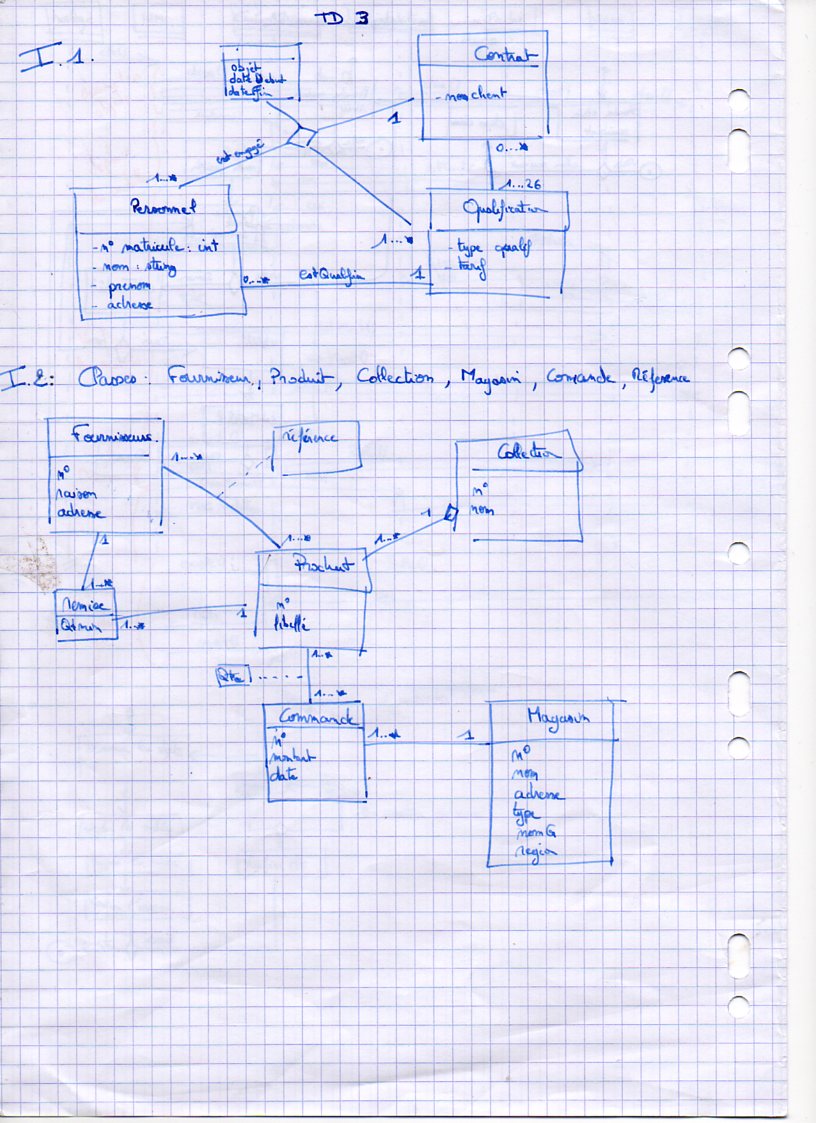 TD 3
I.1.
objet
date Debut
date fin
Contrat
- nom client
1
est engagé
0...*
1...*
1...26
Personnel
Qualification
- n° matricule : int
- nom : string
- prenom
- adresse
1...*
- type qualif
- tarif
0...*
estQualifin
1
I.2: Classes : Fournisseur, Produit, Collection, Magasin, Comande, Réference
Fournisseurs
n°
raison
adresse
1...*
référence
Collection
n°
nom
1
1...*
1...*
1
1...*
Produit
n°
libellé
remise
Qtmin
1...*
1
1..*
Qte
1...*
Commande
n°
montant
date
1...*
1
Magasin
n°
nom
adresse
type
nomG
region